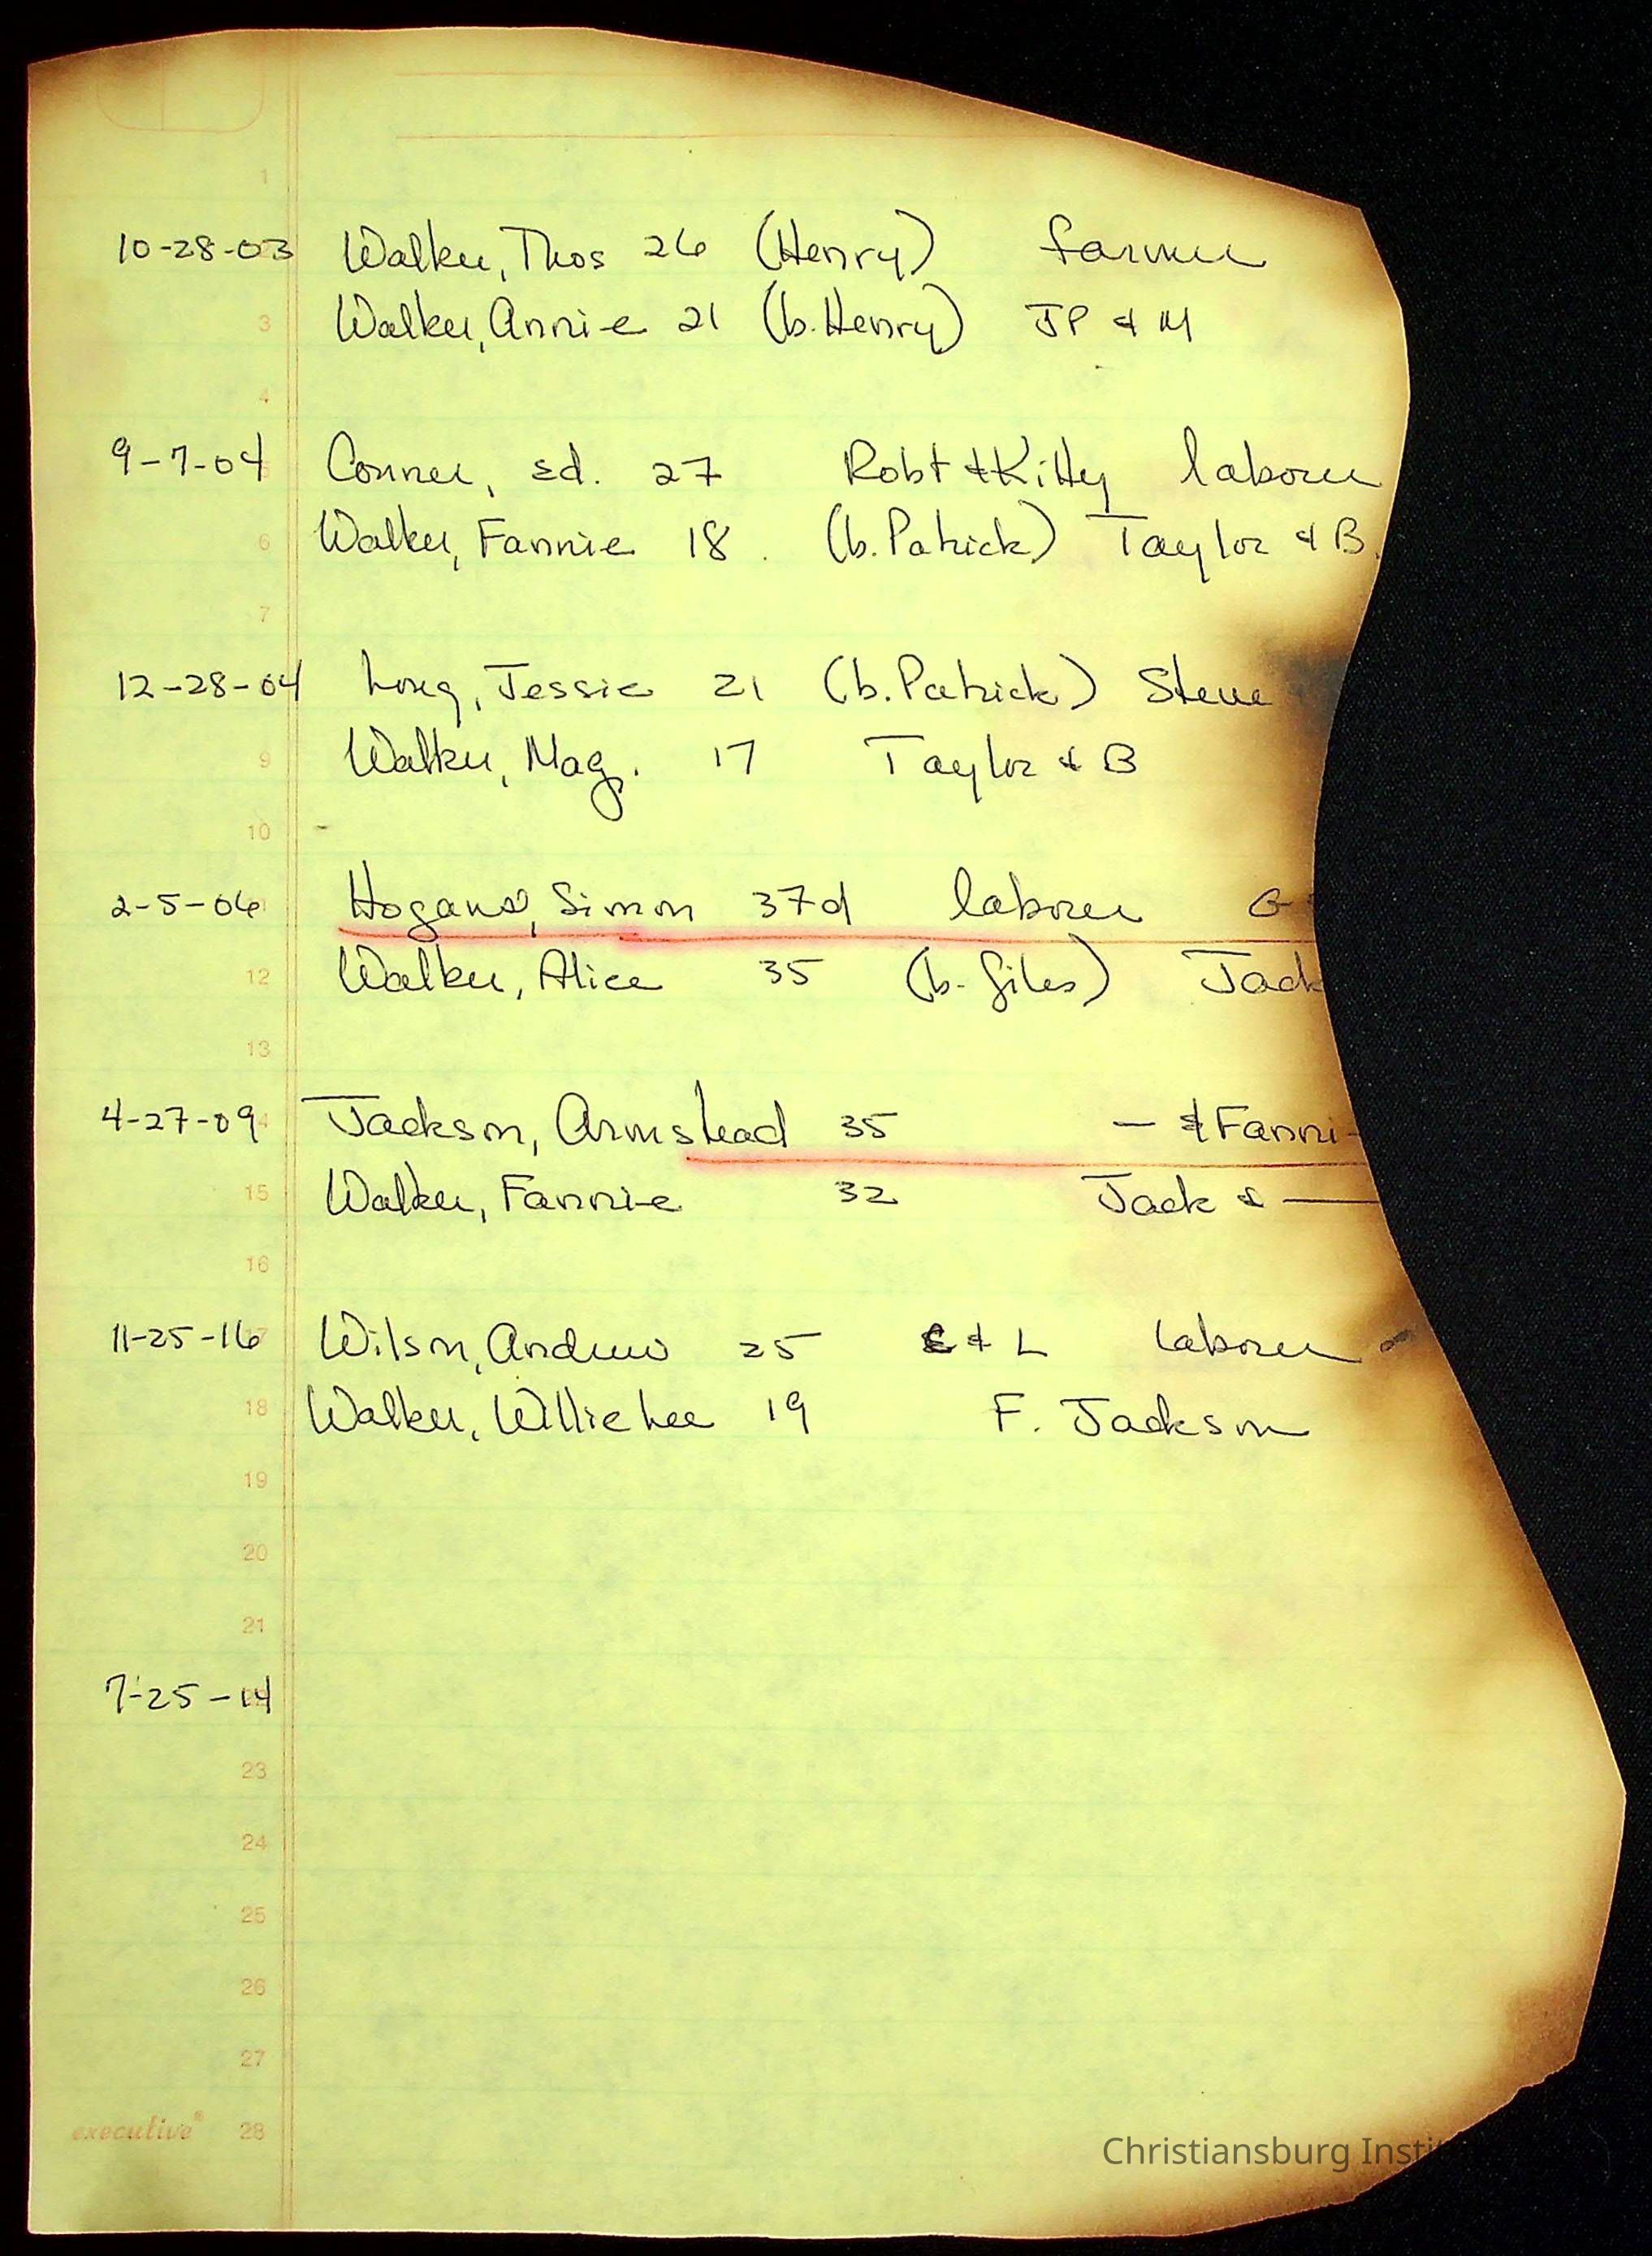 1
10-28-03 Walker, Thos 26 (Henry) farmer
3 Walker, Annie 21 (b. Henry) JP & M
4
9-7-04 Conner, Ed. 27 Robt & Kitty laborer
6 Walker, Fannie 18. (b. Patrick) Taylor & B.
7
12-28-04 Long, Jessie 21 (b. Patrick) Steve
9 Walker, Mag. 17 Taylor & B
10
2-5-06 Hogans, Simon 37d laborer G
12 Walker, Alice 35 (b. Giles) Jack
13
4-27-09 Jackson, Armstead 35 — & Fanni
15 Walker, Fannie 32 Jack & —
16
11-25-16 Wilson, Andrew 25 & L laborer
18 Walker, Willie Lee 19 F. Jackson
19
20
21
7-25-14
23
24
25
26
27
executive® 28
Christiansburg Instit